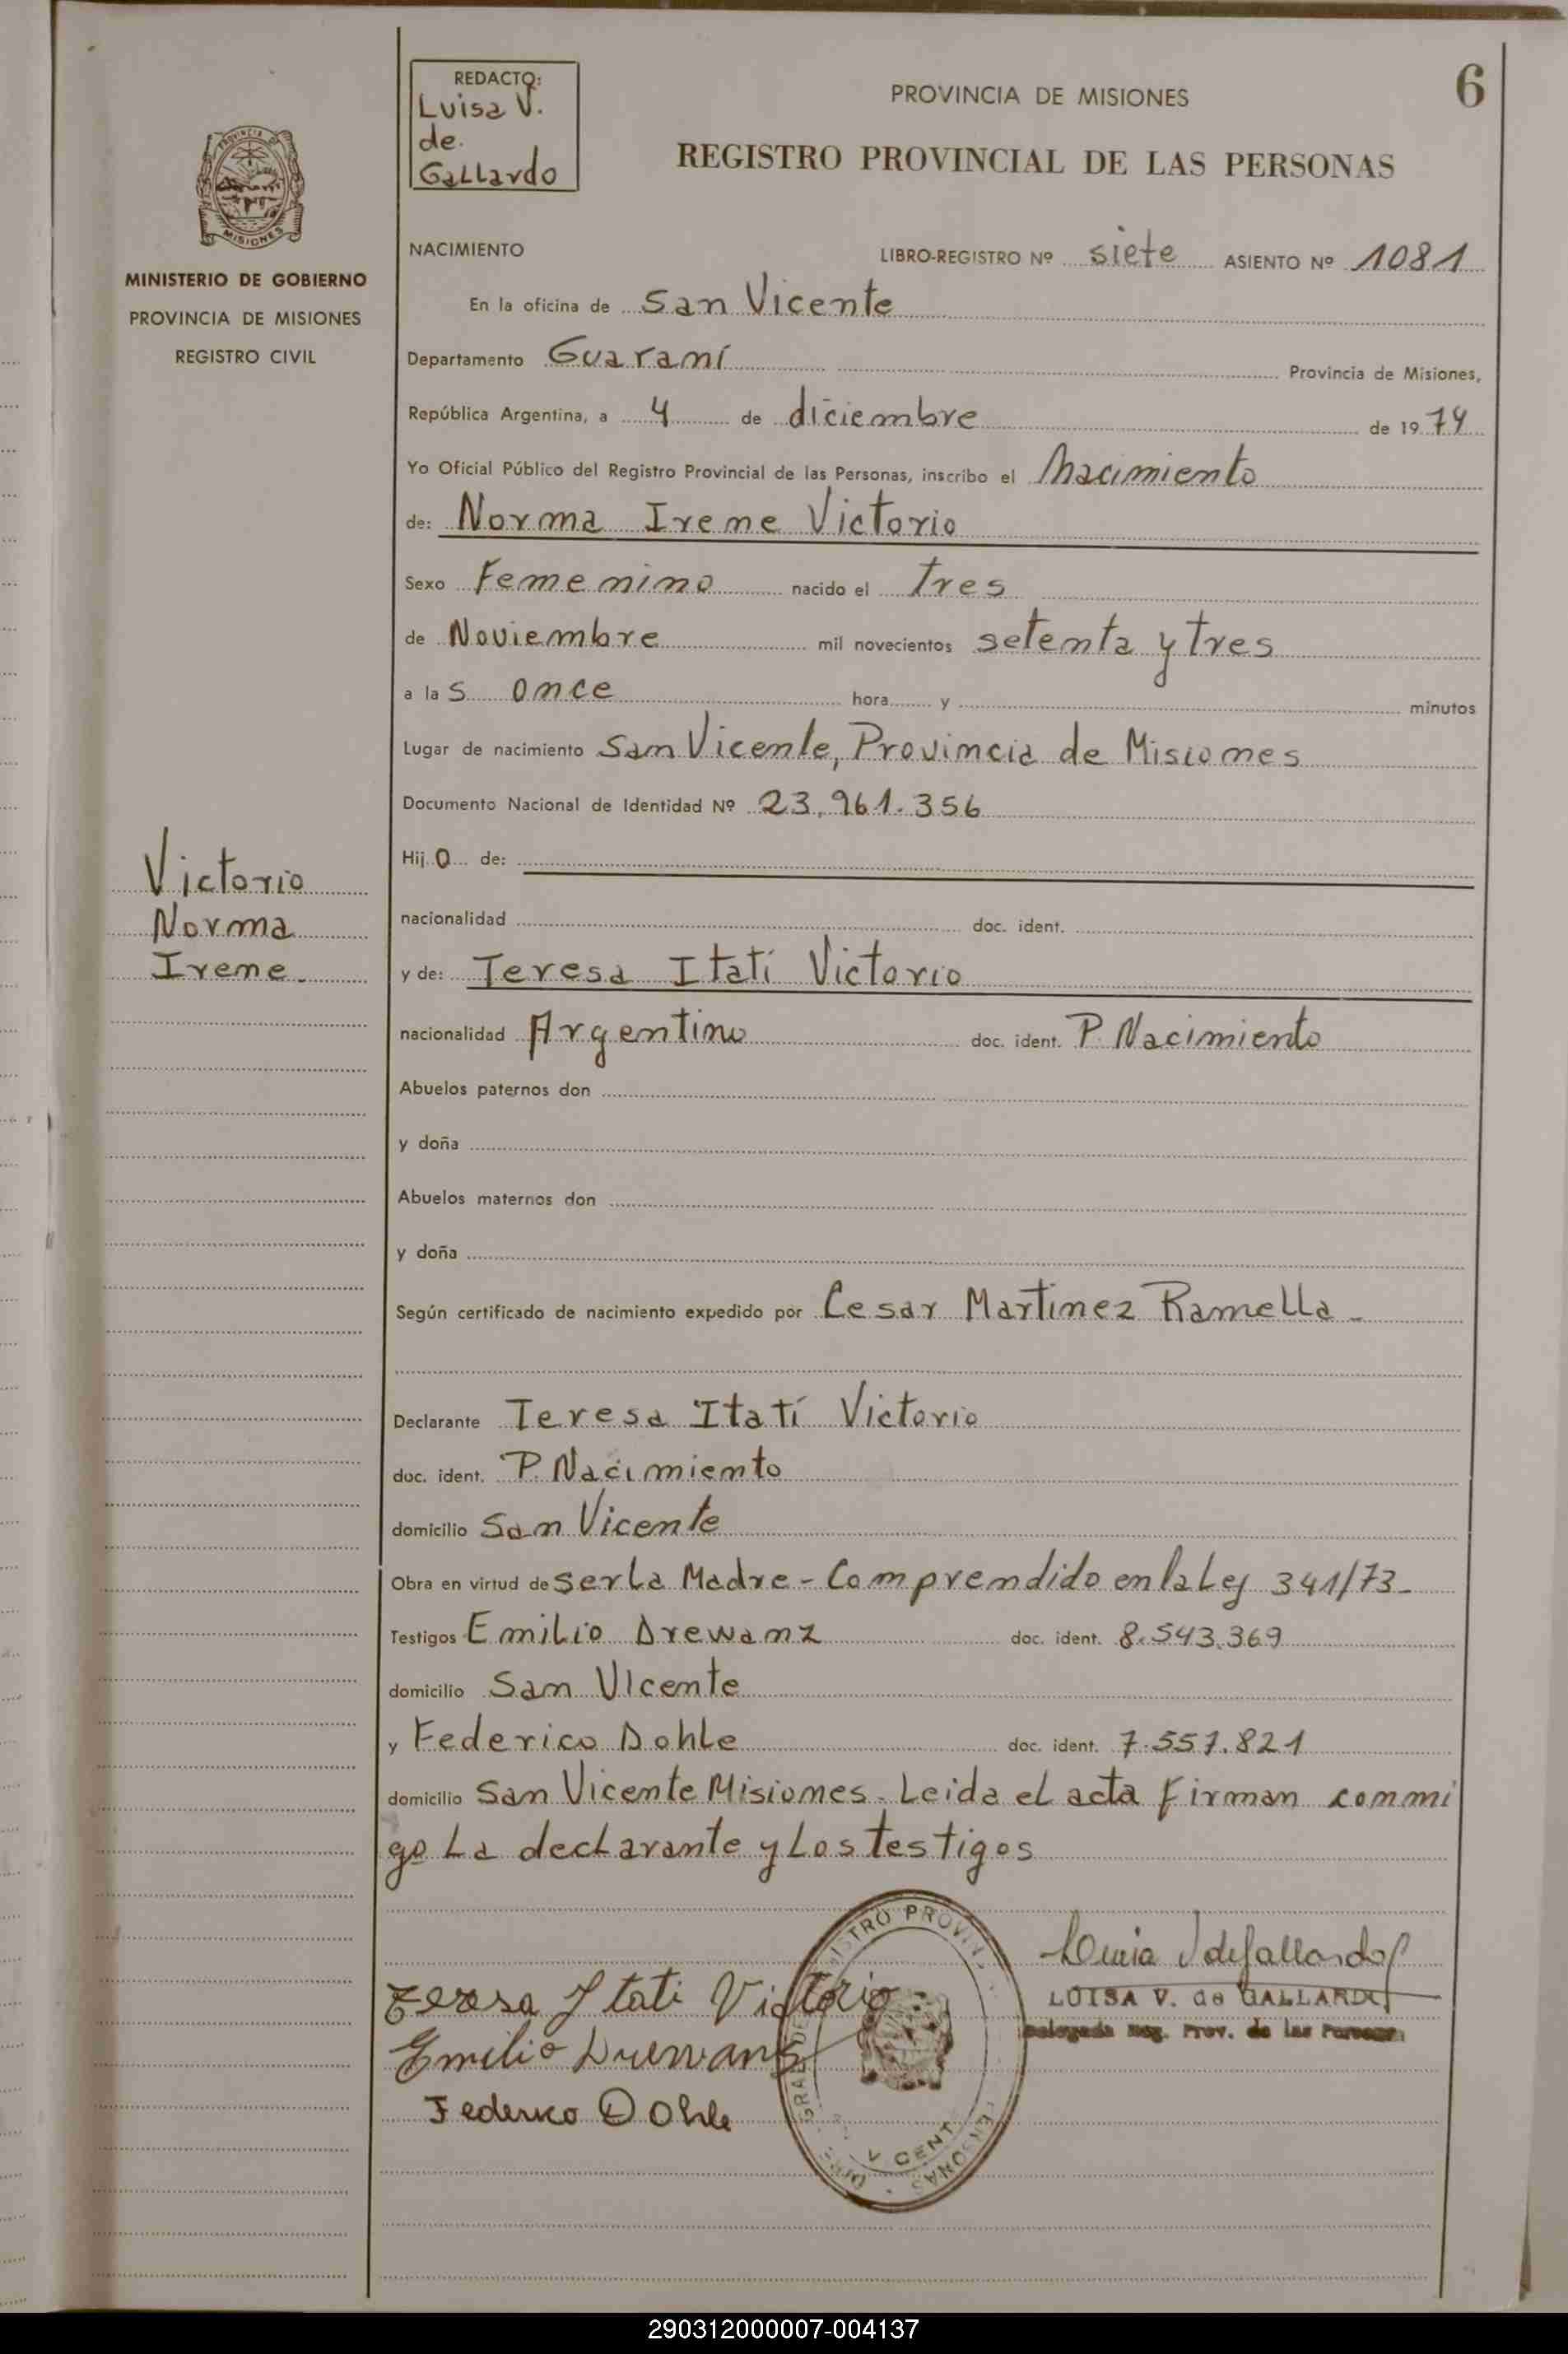 6
REDACTO:
Luisa V.
de
Gallardo
PROVINCIA DE MISIONES
REGISTRO PROVINCIAL DE LAS PERSONAS
PROVINCIA DE
MISIONES
MINISTERIO DE GOBIERNO
PROVINCIA DE MISIONES
REGISTRO CIVIL
NACIMIENTO LIBRO-REGISTRO Nº siete ASIENTO Nº 1081
En la oficina de San Vicente
Departamento Guaraní Provincia de Misiones,
República Argentina, a 4 de diciembre de 1974
Yo Oficial Público del Registro Provincial de las Personas, inscribo el Nacimiento
de: Norma Irene Victorio
Sexo Femenino nacido el Tres
de Noviembre mil novecientos setenta y tres
a las once hora y minutos
Lugar de nacimiento San Vicente, Provincia de Misiones
Documento Nacional de Identidad Nº 23.961.356
Hijo de:
Victorio
Norma
Irene.
nacionalidad doc. ident.
y de: Teresa Itatí Victorio
nacionalidad Argentino doc. ident. P. Nacimiento
Abuelos paternos don
y doña
Abuelos maternos don
y doña
Según certificado de nacimiento expedido por Cesar Martinez Ramella -
Declarante Teresa Itatí Victorio
doc. ident. P. Nacimiento
domicilio San Vicente
Obra en virtud de ser la Madre - Comprendido en la Ley 341/73-
Testigos Emilio Drewanz doc. ident. 8.543.369
domicilio San Vicente
y Federico Dohle doc. ident. 7.557.821
domicilio San Vicente Misiones. Leida el acta firman conmi
go La declarante y Los testigos
Teresa Itati Victorio
Emilio Drewanz
Federico Dohle
Luisa V de Gallardo
LUISA V. de GALLARDO
Delegada Reg. Prov. de las Personas
290312000007-004137